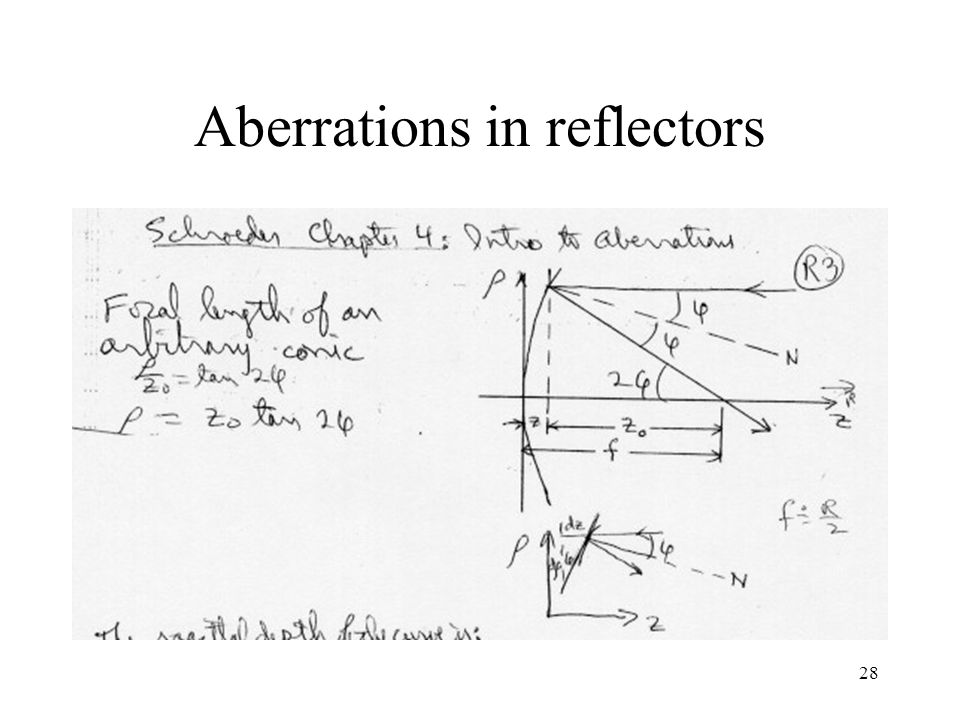 Aberrations in reflectors
Schroeder Chapter 4: Intro to aberrations
R3
ρ
Focal length of an
arbitrary conic
ρ/z₀ = tan 2φ
ρ = z₀ tan 2φ
φ
φ
N
2φ
z
z₀
z
f
f ≐ R/2
dz
ρ
dρ
φ
φ
N
z
The sagittal depth of the curve is:
28